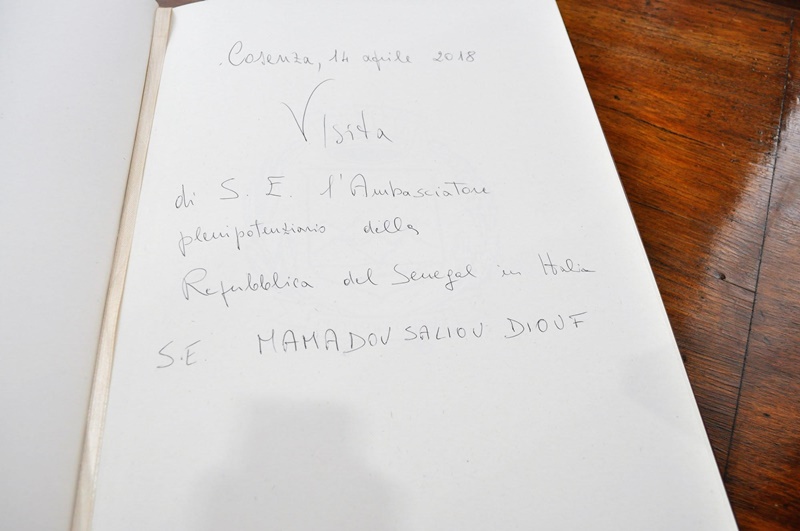 Cosenza, 14 aprile 2018
Visita
di S. E. l'Ambasciatore
plenipotenziario della
Repubblica del Senegal in Italia
S.E. MAMADOU SALIOU DIOUF